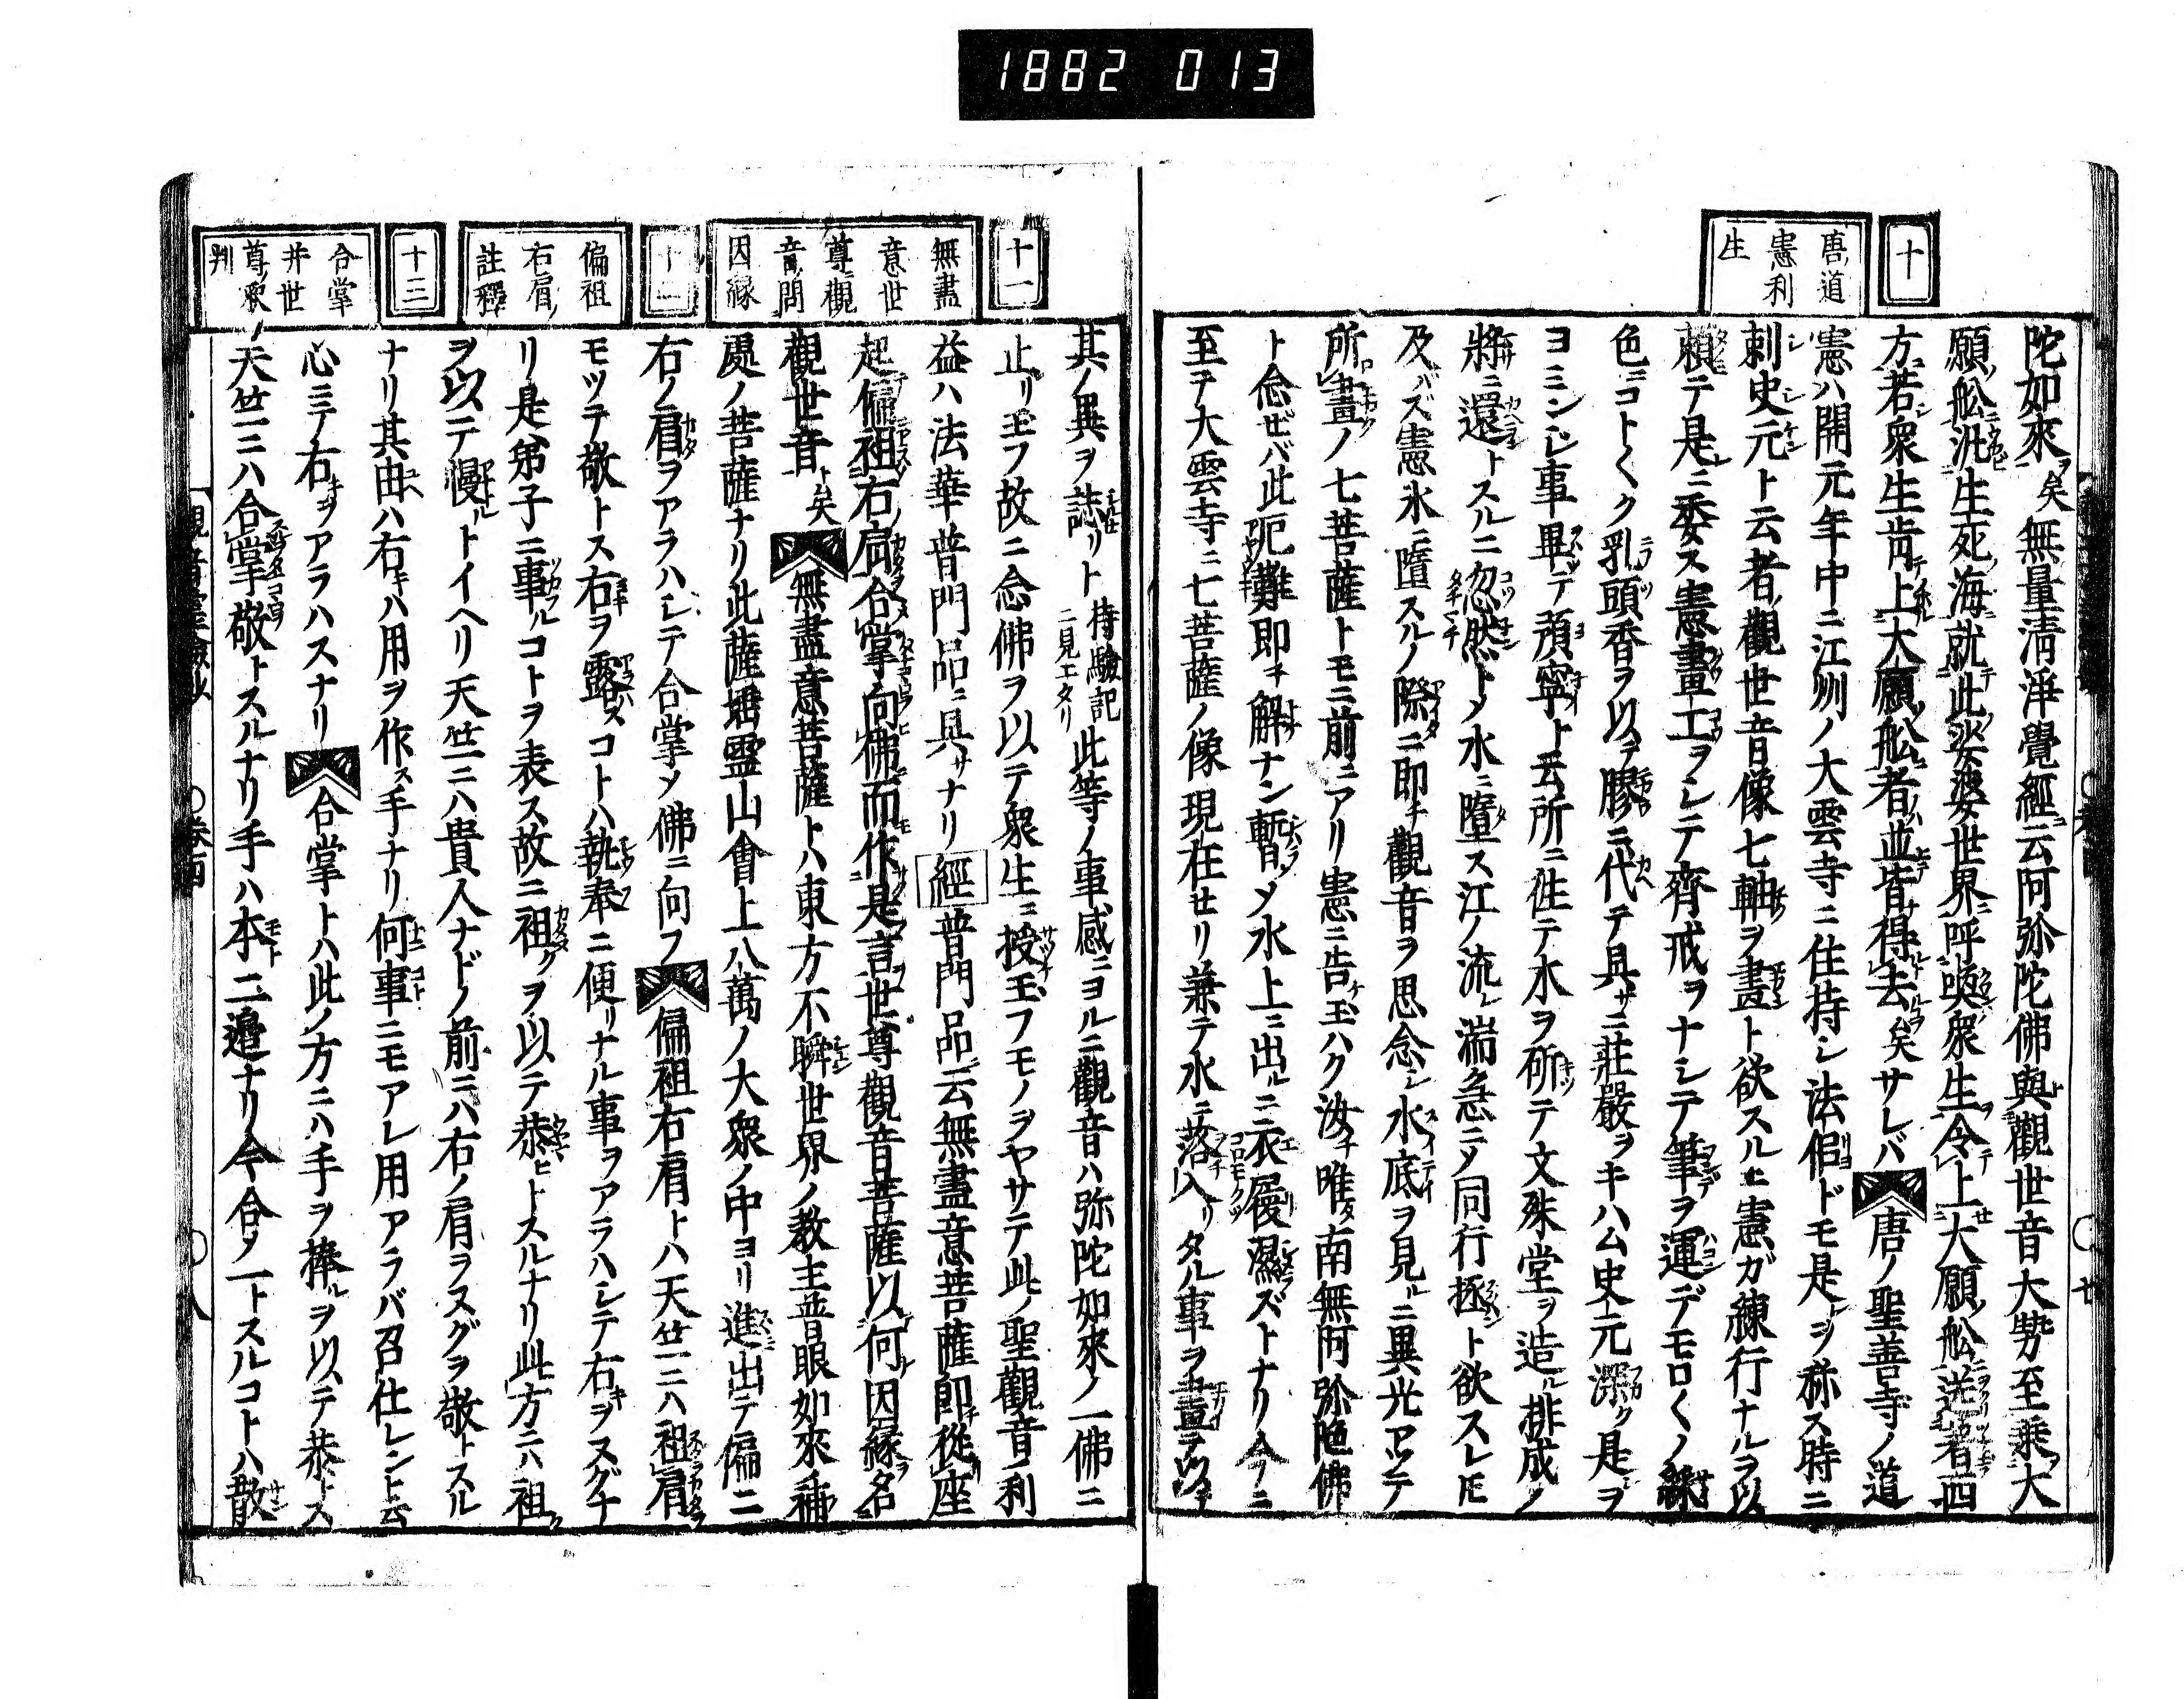 1882 013
十
唐ノ道
憲利
生
陀如來ヲ矣無量清淨覺經ニ云阿弥陀佛與觀世音大勢至乘大
願ノ舩汎生死海就此娑婆世界呼喚衆生令上大願ノ舩送著西
方若衆生肯上大願舩者並皆得去矣サレバ唐ノ聖善寺ノ道
憲ハ開元年中ニ江州ノ大雲寺ニ住持シ法侶ドモ是ヲ称ス時ニ
刺史元ト云者觀世音ノ像七軸ヲ畫ト欲スルヒ憲ガ練行ナルヲ以
頼テ是ニ委ス憲畫工ヲシテ齊戒ヲナシテ筆ヲ運デモロ〱ノ綵
色コト〱ク乳頭香ヲ以テ膠ニ代テ具サニ莊嚴ヲキハム史元深ク是ヲ
ヨミンシ事畢テ預寧ト云所ニ徃テ水ヲ斫テ文殊堂ヲ造ル排成ノ
將ニ還トスルニ忽然トメ水ニ墮ス江ノ流レ湍急ニメ同行拯ト欲スレ𪜈
及バズ憲水ニ墮スルノ際ニ即チ觀音ヲ思念シ水底ヲ見ルニ異光アツテ
所畫ノ七菩薩トモニ前ニアリ憲ニ告玉ハク汝チ唯タ南無阿弥陀佛
ト念ゼバ此ノ厄難即チ解ナン暫メ水上ニ出ルニ衣履濕ズトナリ今ニ
至テ大雲寺ニ七菩薩ノ像現在セリ兼テ水ニ落入リタル事ヲ畫テ以テ
十一
無盡
意世
尊ニ觀
音ノ問
因縁
十二
偏袒
右肩ノ
註釋
十三
合掌
并世
尊ノ釈
判
其ノ異ヲ誌セリト持驗記ニ見エタリ此等ノ事感ニヨルニ觀音ハ弥陀如來ノ一佛ニ
止リ玉フ故ニ念佛ヲ以テ衆生ニ授玉フモノヲヤサテ此ノ聖觀音ノ利
益ハ法華普門品ニ具サナリ經普門品云無盡意菩薩即從座
起偏袒右肩合掌向佛而作是言世尊觀音菩薩以何因縁名
觀世音ト矣無盡意菩薩トハ東方不瞬世界ノ教主普眼如來補
處ノ菩薩ナリ此薩埵靈山會上八萬ノ大衆ノ中ヨリ進出テ偏ニ
右ノ肩ヲアラハシテ合掌メ佛ニ向フ偏袒右肩トハ天竺ニハ袒肩ヲ
モツテ敬トス右ヲ露スコトハ執奉ニ便リナル事ヲアラハシテ右キヲスグナ
リ是弟子ニ事ルコトヲ表ス故ニ袒クヲ以テ恭ヒトスルナリ此方ニハ袒ク
ヲ以テ慢ルトイヘリ天竺ニハ貴人ナドノ前ニハ右ノ肩ヲヌグヲ敬トスル
ナリ其由ハ右キハ用ヲ作ス手ナリ何事ニモアレ用アラバ召仕レント云
心ニテ右キヲアラハスナリ合掌トハ此ノ方ニハ手ヲ捧ルヲ以テ恭トス
天竺ニハ合掌敬トスルナリ手ハ本ト二邉ナリ今合ノ一トスルコトハ散